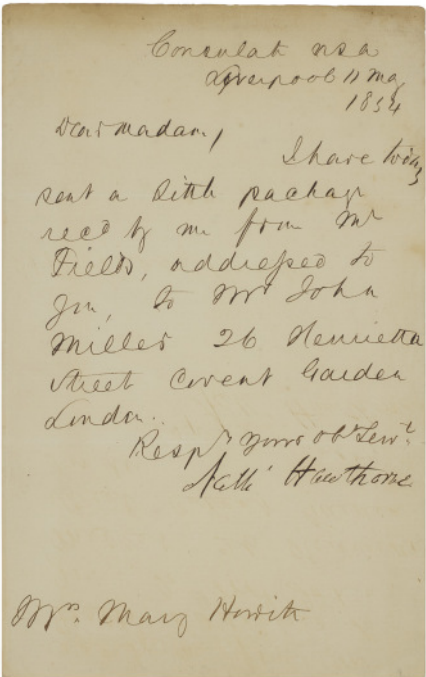 Consulate USA
Liverpool 11 May
1854
Dear Madam,
I have today
sent a little package
recd by me from Mr
Fields, addressed to
you, to Mr John
Miller 26 Henrietta
Street Covent Garden
London.
Respy yours obt Servt
Nathl Hawthorne
Mrs. Mary Howitt